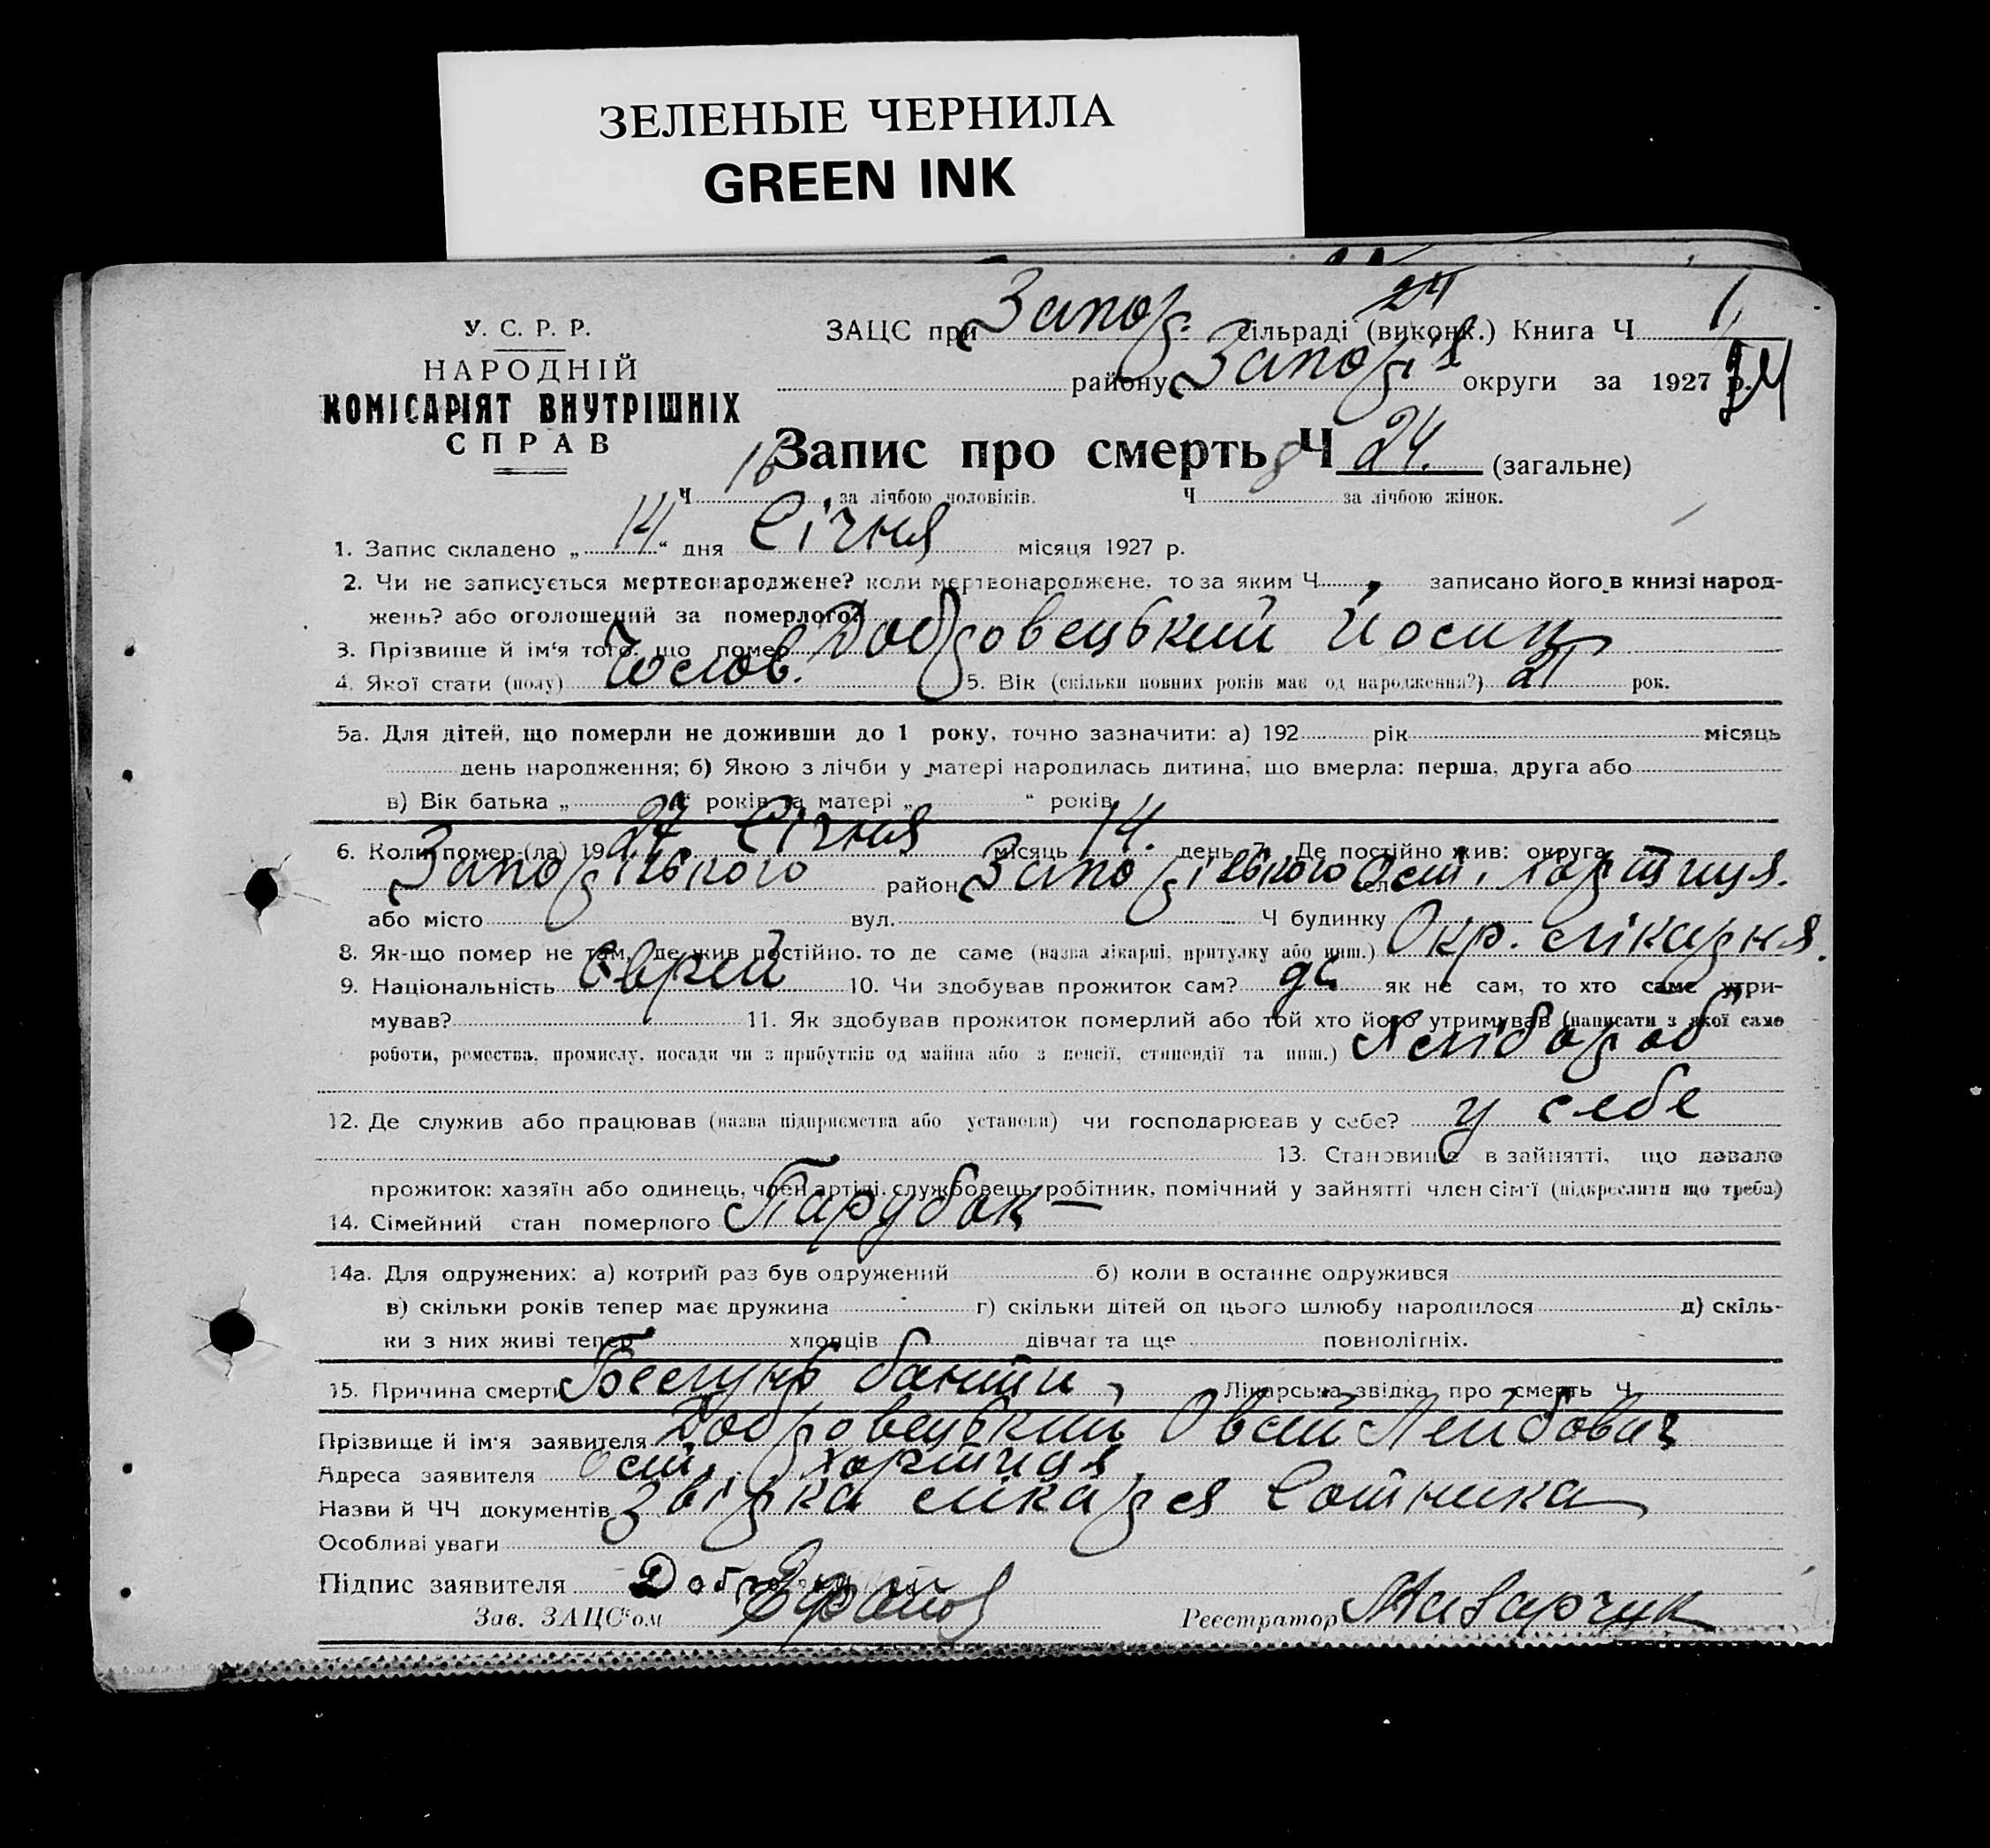 ЗЕЛЕНЫЕ ЧЕРНИЛА
GREEN INK
24
У. С. Р. Р.
НАРОДНІЙ
КОМІСАРІЯТ ВНУТРІШНІХ
СПРАВ
ЗАЦС при Запор. сільраді (виконк.) Книга Ч 1
району Запоріз округи за 1927 р. 24
Запис про смерть Ч 24. (загальне)
Ч 16 за лічбою чоловіків. Ч 8 за лічбою жінок.
1. Запис складено „ 14 “ дня Січня місяця 1927 р.
2. Чи не записується мертвонароджене? коли мертвонароджене, то за яким Ч записано його в книзі народ-
жень? або оголошений за померлого?
3. Прізвище й ім'я того, що помер Добровецький Йосип
4. Якої стати (полу) Чолов. 5. Вік (скільки повних років має од народження?) 21 рок.
5а. Для дітей, що померли не доживши до 1 року, точно зазначити: а) 192 рік місяць
день народження; б) Якою з лічби у матері народилась дитина, що вмерла: перша, друга або
в) Вік батька „ “ років та матері „ “ років
6. Коли помер-(ла) 1927 Січня місяць 14. день 7. Де постійно жив: округа
Запорізького район Запорізького сел Ост. Хортиця.
або місто вул. Ч будинку
8. Як-що помер не там, де жив постійно, то де саме (назва лікарні, притулку або инш.) Окр. лікарня.
9. Національність Єврей 10. Чи здобував прожиток сам? да як не сам, то хто саме утри-
мував? 11. Як здобував прожиток померлий або той хто його утримував (написати з якої саме
роботи, ремества, промислу, посади чи з прибутків од майна або з пенсії, стипендії та инш.) Хлібороб
12. Де служив або працював (назва підприємства або установи) чи господарював у себе? у себе
13. Становище в зайнятті, що давало
прожиток: хазяїн або одинець, член артілі, службовець, робітник, помічний у зайнятті член сім'ї (підкреслити що треба)
14. Сімейний стан померлого Парубок
14а. Для одружених: а) котрий раз був одружений б) коли в останнє одружився
в) скільки років тепер має дружина г) скільки дітей од цього шлюбу народилося д) скіль-
ки з них живі тепер хлопців дівчат та ще повнолітніх.
15. Причина смерти Лікарська звідка про смерть Ч
Прізвище й ім'я заявителя Добровецький Овсій Лейбович
Адреса заявителя Ост. Хортиця.
Назви й ЧЧ документів Звідка лікаря Сотника
Особливі уваги
Підпис заявителя
Зав. ЗАЦС'ом
Реєстратор